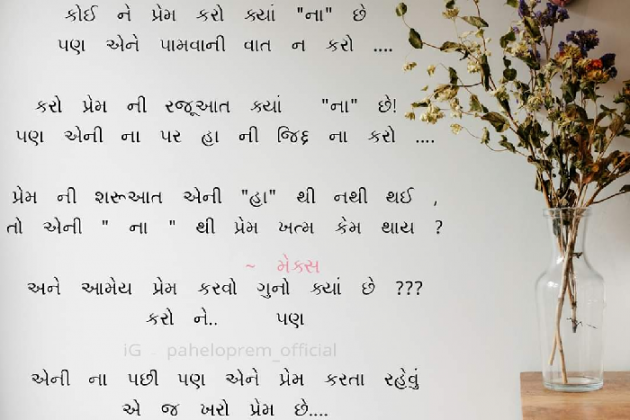 કોઈ ને પ્રેમ કરો ક્યાં "ના" છે
પણ એને પામવાની વાત ન કરો ....
કરો પ્રેમ ની રજૂઆત ક્યાં "ના" છે!
પણ એની ના પર હા ની જિદ્દ ના કરો ....
પ્રેમ ની શરૂઆત એની "હા" થી નથી થઈ ,
તો એની " ના " થી પ્રેમ ખત્મ કેમ થાય ?
~ મેક્સ
અને આમેય પ્રેમ કરવો ગુનો ક્યાં છે ???
કરો ને.. પણ
iG - paheloprem_official
એની ના પછી પણ એને પ્રેમ કરતા રહેવું
એ જ ખરો પ્રેમ છે....